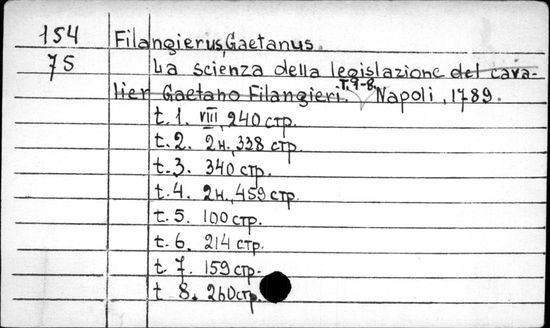 154 Filangierus, Gaetanus.
75 La scienza della legislazione del cava-
lier Gaetano Filangieri. T. 1-8. Napoli, 1789.
t. 1. VIII, 240 стр.
t. 2. 2н., 338 стр.
t. 3. 340 стр.
t. 4. 2н., 459 стр.
t. 5. 100 стр.
t. 6. 214 стр.
t. 7. 159 стр.
t. 8. 260 стр.